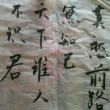 莫愁前路
無知己
天下誰人
不識君